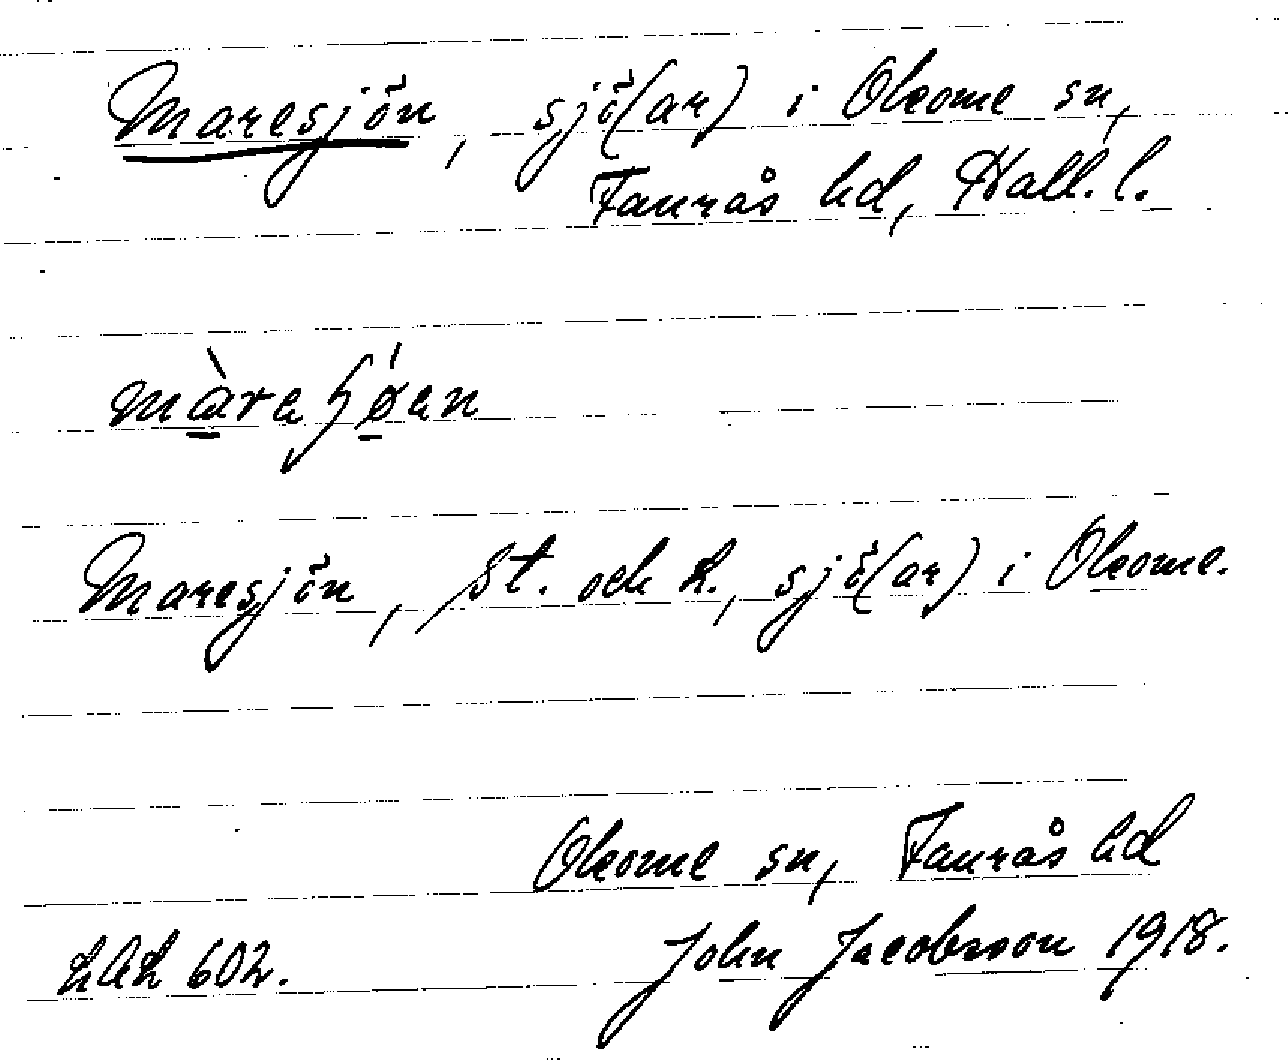 Maresjön, sjö(ar) i Okome sn,
Faurås hd, Hall. l.
màreɧǿen
Maresjön, St. och L., sjö(ar) i Okome.
Okome sn, Faurås hd
LAL 602. John Jacobsson 1918.